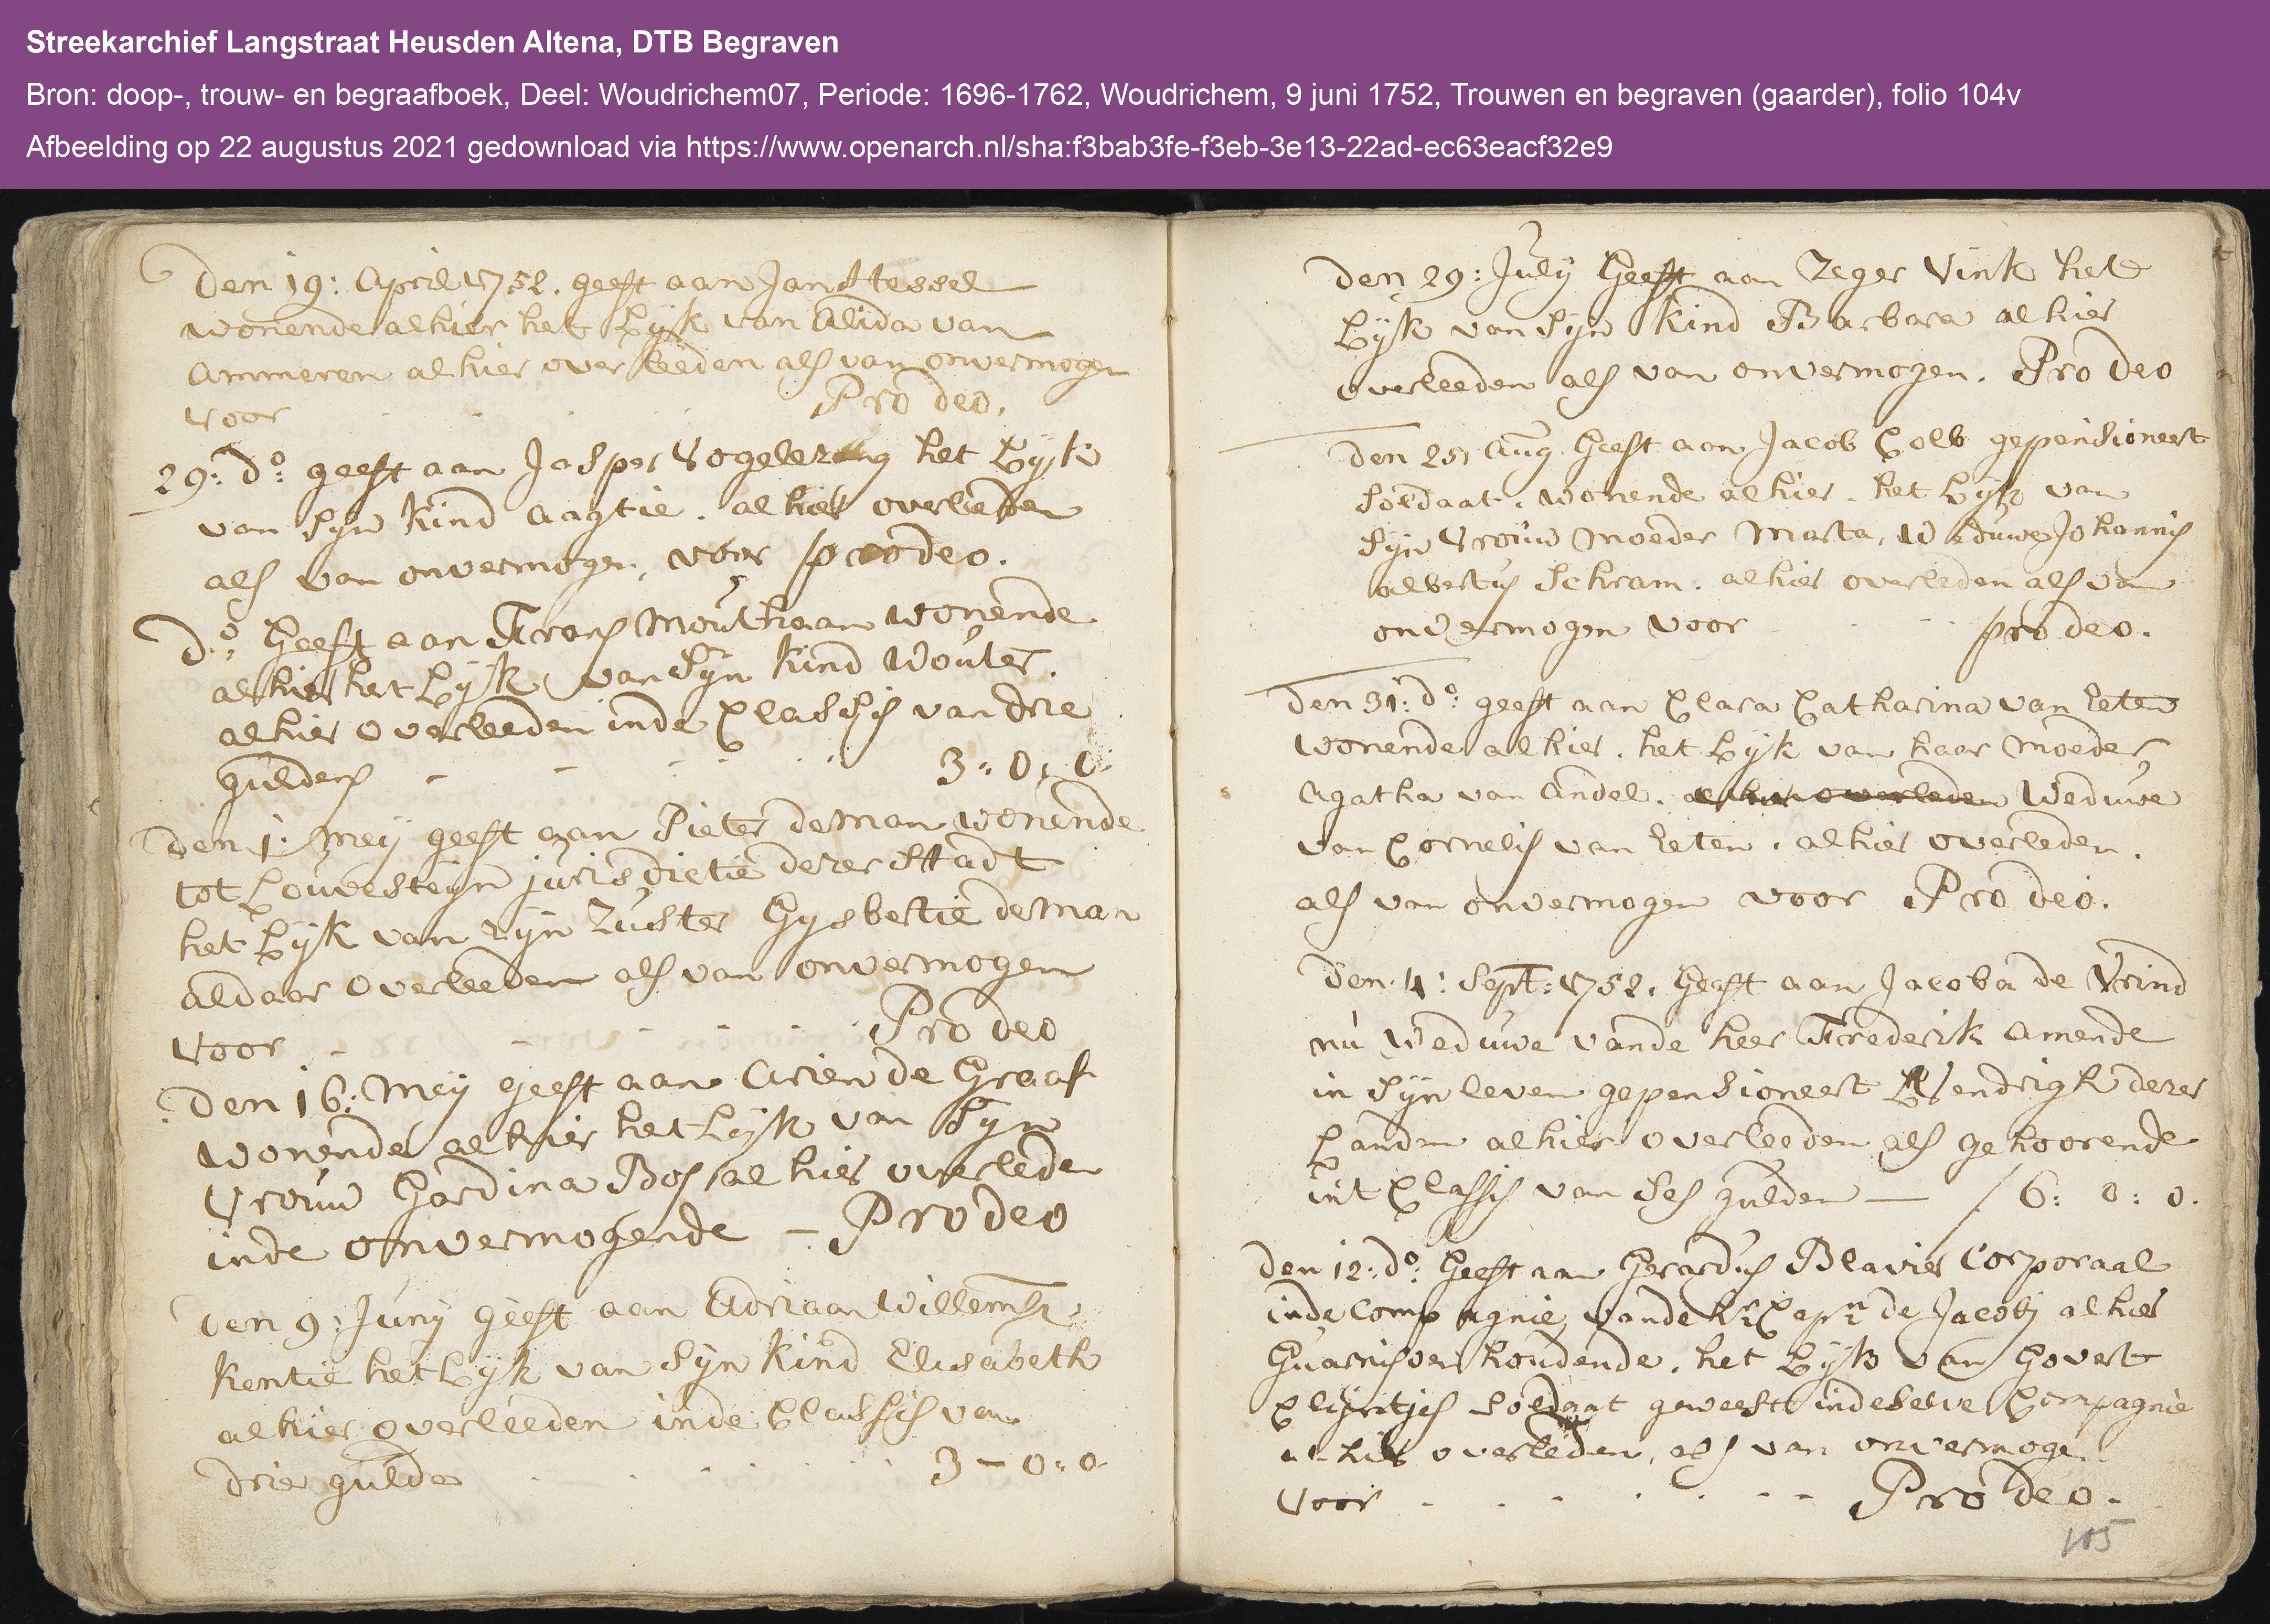 Streekarchief Langstraat Heusden Altena, DTB Begraven
Bron: doop-, trouw- en begraafboek, Deel: Woudrichem07, Periode: 1696-1762, Woudrichem, 9 juni 1752, Trouwen en begraven (gaarder), folio 104v
Afbeelding op 22 augustus 2021 gedownload via https://www.openarch.nl/sha:f3bab3fe-f3eb-3e13-22ad-ec63eacf32e9
Den 19: April 1752. geeft aan Jan Stessel
wonende alhier het Lijk van Alida van
Ammeren alhier overleeden als van onvermogen
voor Pro deo.
29: do: geeft aan Jasper Vogelezang het Lijk
van Sijn kind Aagtie. alhier overleden
als van onvermogen, voor pro deo.
do: Geeft aan Frans Mouthaan wonende
alhier het Lijk van Sijn kind Wouter.
alhier overleeden inde Classis van drie
guldens - - 3: 0: 0:
Den 1: Meij geeft aan Pieter de man wonende
tot Louvesteijn jurisdictie dezer Stadt
het Lijk van zijn Zuster Gijsbertie de man
aldaar overleeden als van onvermogen
voor Pro deo
Den 16: Meij geeft aan Arien de Graaf
wonende alhier het Lijk van Sijn
Vrouw Gardina Bos alhier overleden
inde onvermogende - Pro deo
Den 9: Junij geeft aan Adriaan Willemse
Kentie het Lijk van Sijn kind Elisabeth
alhier overleeden inde Classis van
drie gulde 3 - 0: 0
Den 29: Julij Geeft aan Zeger Vink het
Lijk van Sijn kind Barbara alhier
overleeden als van onvermogen. Pro deo
Den 25: Aug. Geeft aan Jacob Colb gepensioneert
Soldaat. wonende alhier. het Lijk van
Sijn Vrouw Moeder Marta, Weduwe Johannis
albertus Schram. alhier overleden als van
onvermogen voor pro deo.
Den 31: do: geeft aan Clara Catharina van Zeten
wonende alhier. het Lijk van haar moeder
Agatha van Andel. alhier overleden Weduwe
van Cornelis van Zeten. alhier overleden.
als van onvermogen voor Pro deo.
Den 4: Sept: 1752. Geeft aan Jacoba de Vrind
nu Weduwe vande heer Frederik Amende
in Sijn leven gepensioneert Vendrigh dezer
Landen alhier overleeden als gehoorende
int Classis van Ses gulden — 6: 0: 0.
Den 12: do: Geeft aan Gerardus Blavier Corporaal
inde Compagnie vande hr: Capn: de Jacobj alhier
Guarnisoen houdende. het Lijk van Govert
Soldaat geweest indeselve Compagnie
alhier overleden, als van onvermoge
voor - - - - Pro deo.
105